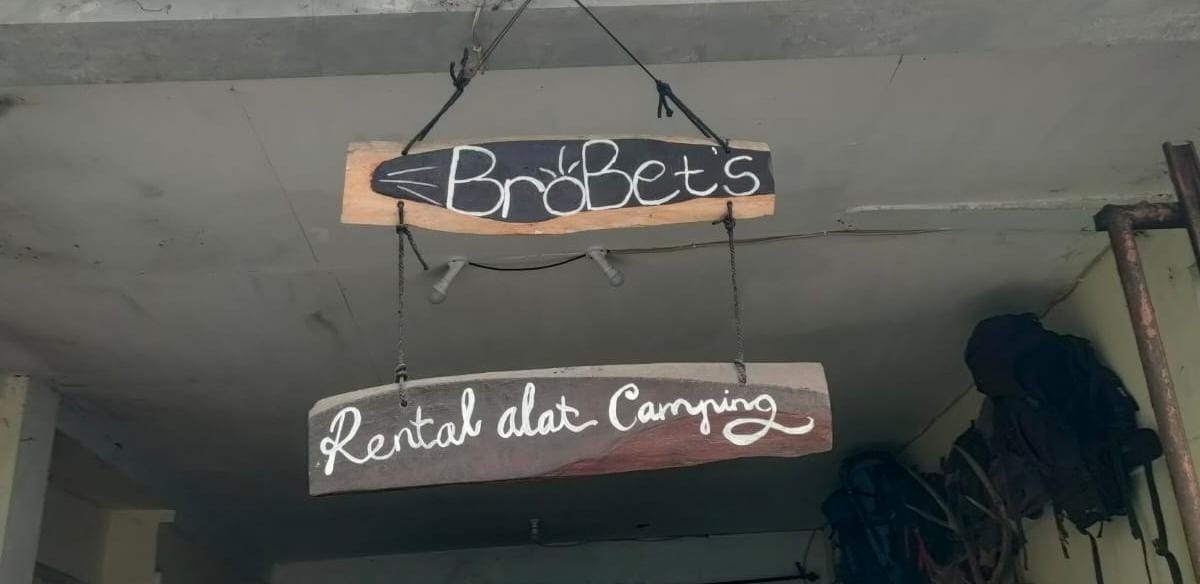 BroBet's
Rental alat Camping